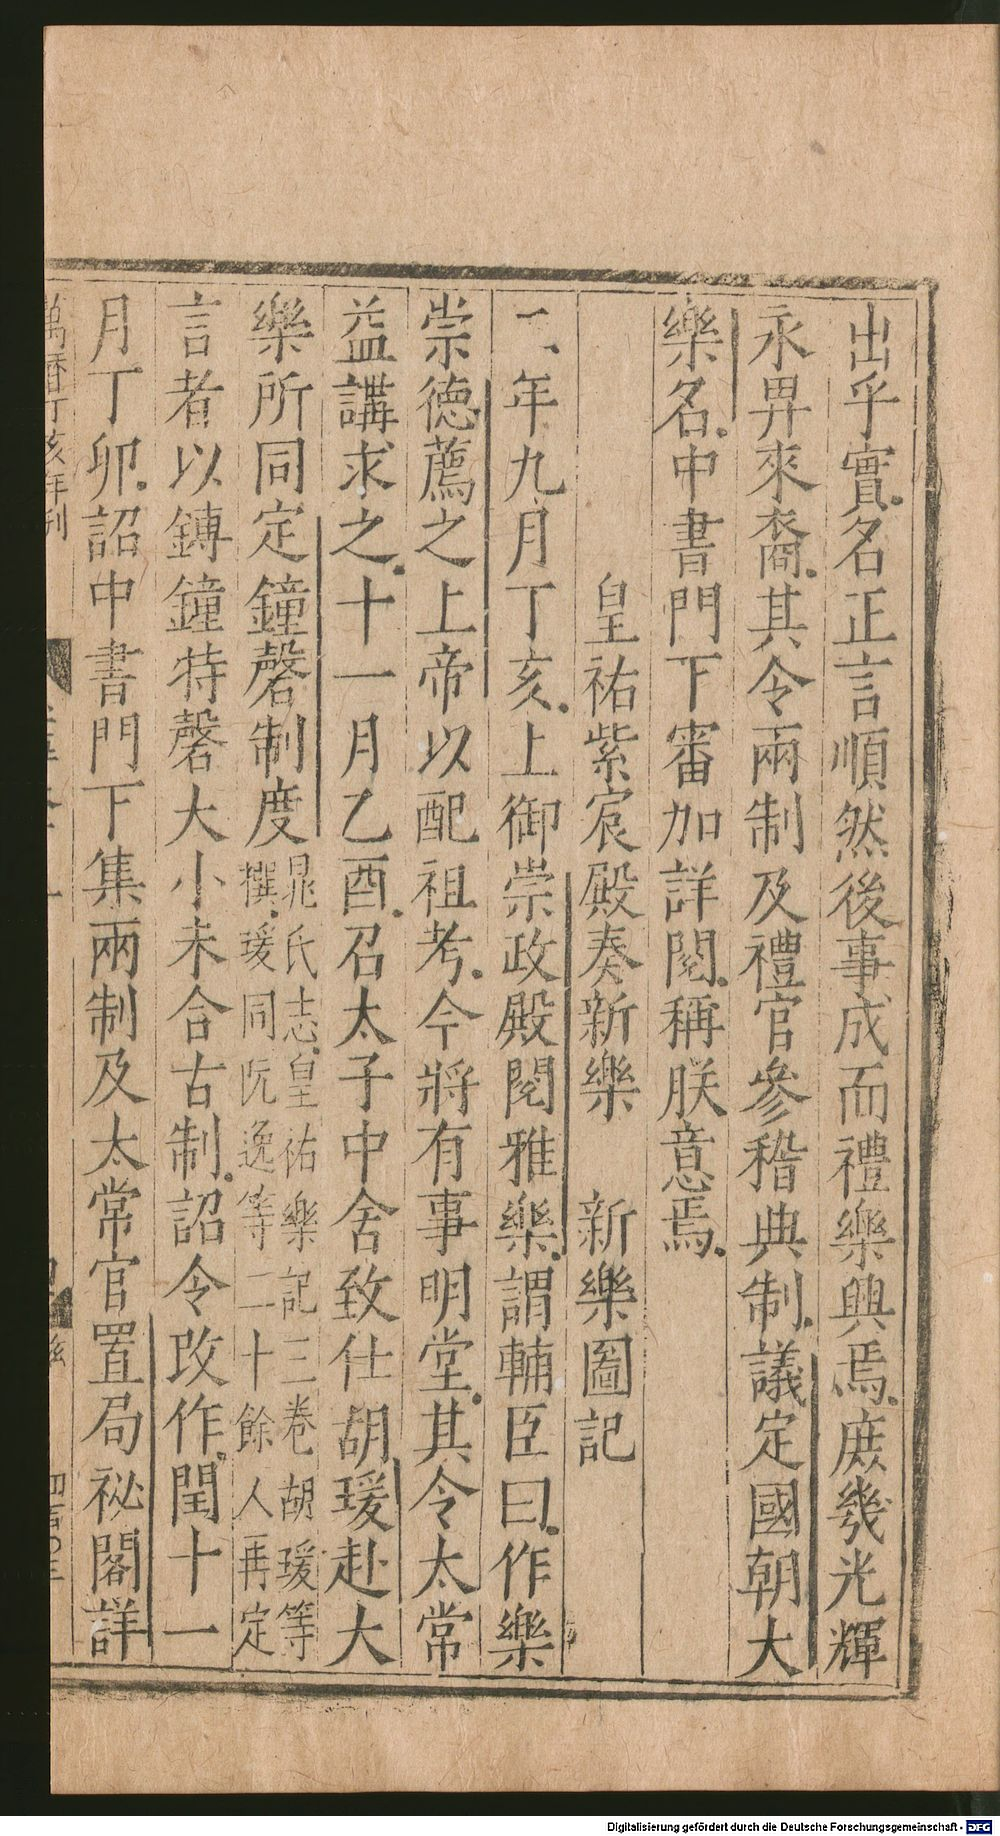 出乎實名正言順然後事成而禮樂興焉庶幾光輝
永畀來裔其令兩制及禮官參稽典制議定國朝大
樂名中書門下審加詳閱稱朕意焉
皇祐紫宸殿奏新樂　新樂圖記
二年九月丁亥上御崇政殿閱雅樂謂輔臣曰作樂
崇德薦之上帝以配祖考今將有事明堂其令太常
益講求之十一月乙酉召太子中舍致仕胡瑗赴大
樂所同定鐘磬制度
晁氏志皇祐樂記三卷胡瑗等
撰瑗同阮逸等二十餘人再定
言者以鎛鐘特磬大小未合古制詔令改作閏十一
月丁卯詔中書門下集兩制及太常官置局祕閣詳
萬曆丁亥年刊
Digitalisierung gefördert durch die Deutsche Forschungsgemeinschaft - DFG